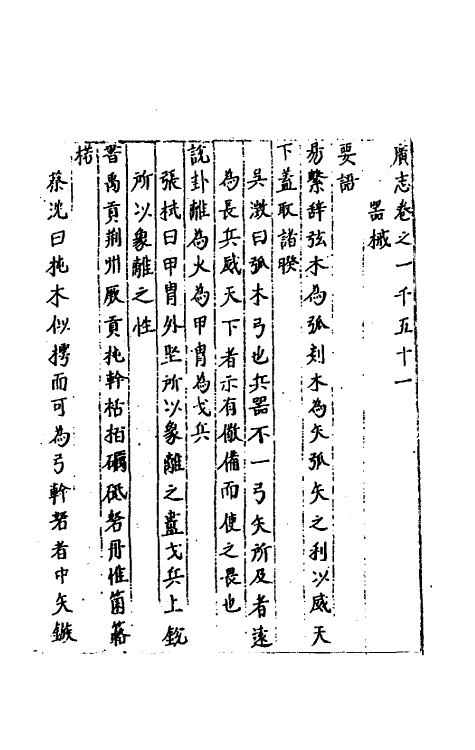 廣志卷之一千五十一
器械
要語
易繫辞弦木為弧剡木為矢弧矢之利以威天
下蓋取諸睽
吳澂曰弧木弓也兵器不一弓矢所及者遠
為長兵威天下者示有儆備而使之畏也
說卦離為火為甲冑為戈兵
張栻曰甲冑外堅所以象離之畫戈兵上銳
所以象離之性
書禹貢荆州厥貢杶幹栝柏礪砥砮丹惟箘簵
楛
蔡沈曰杶木似樗而可為弓幹砮者中矢鏃